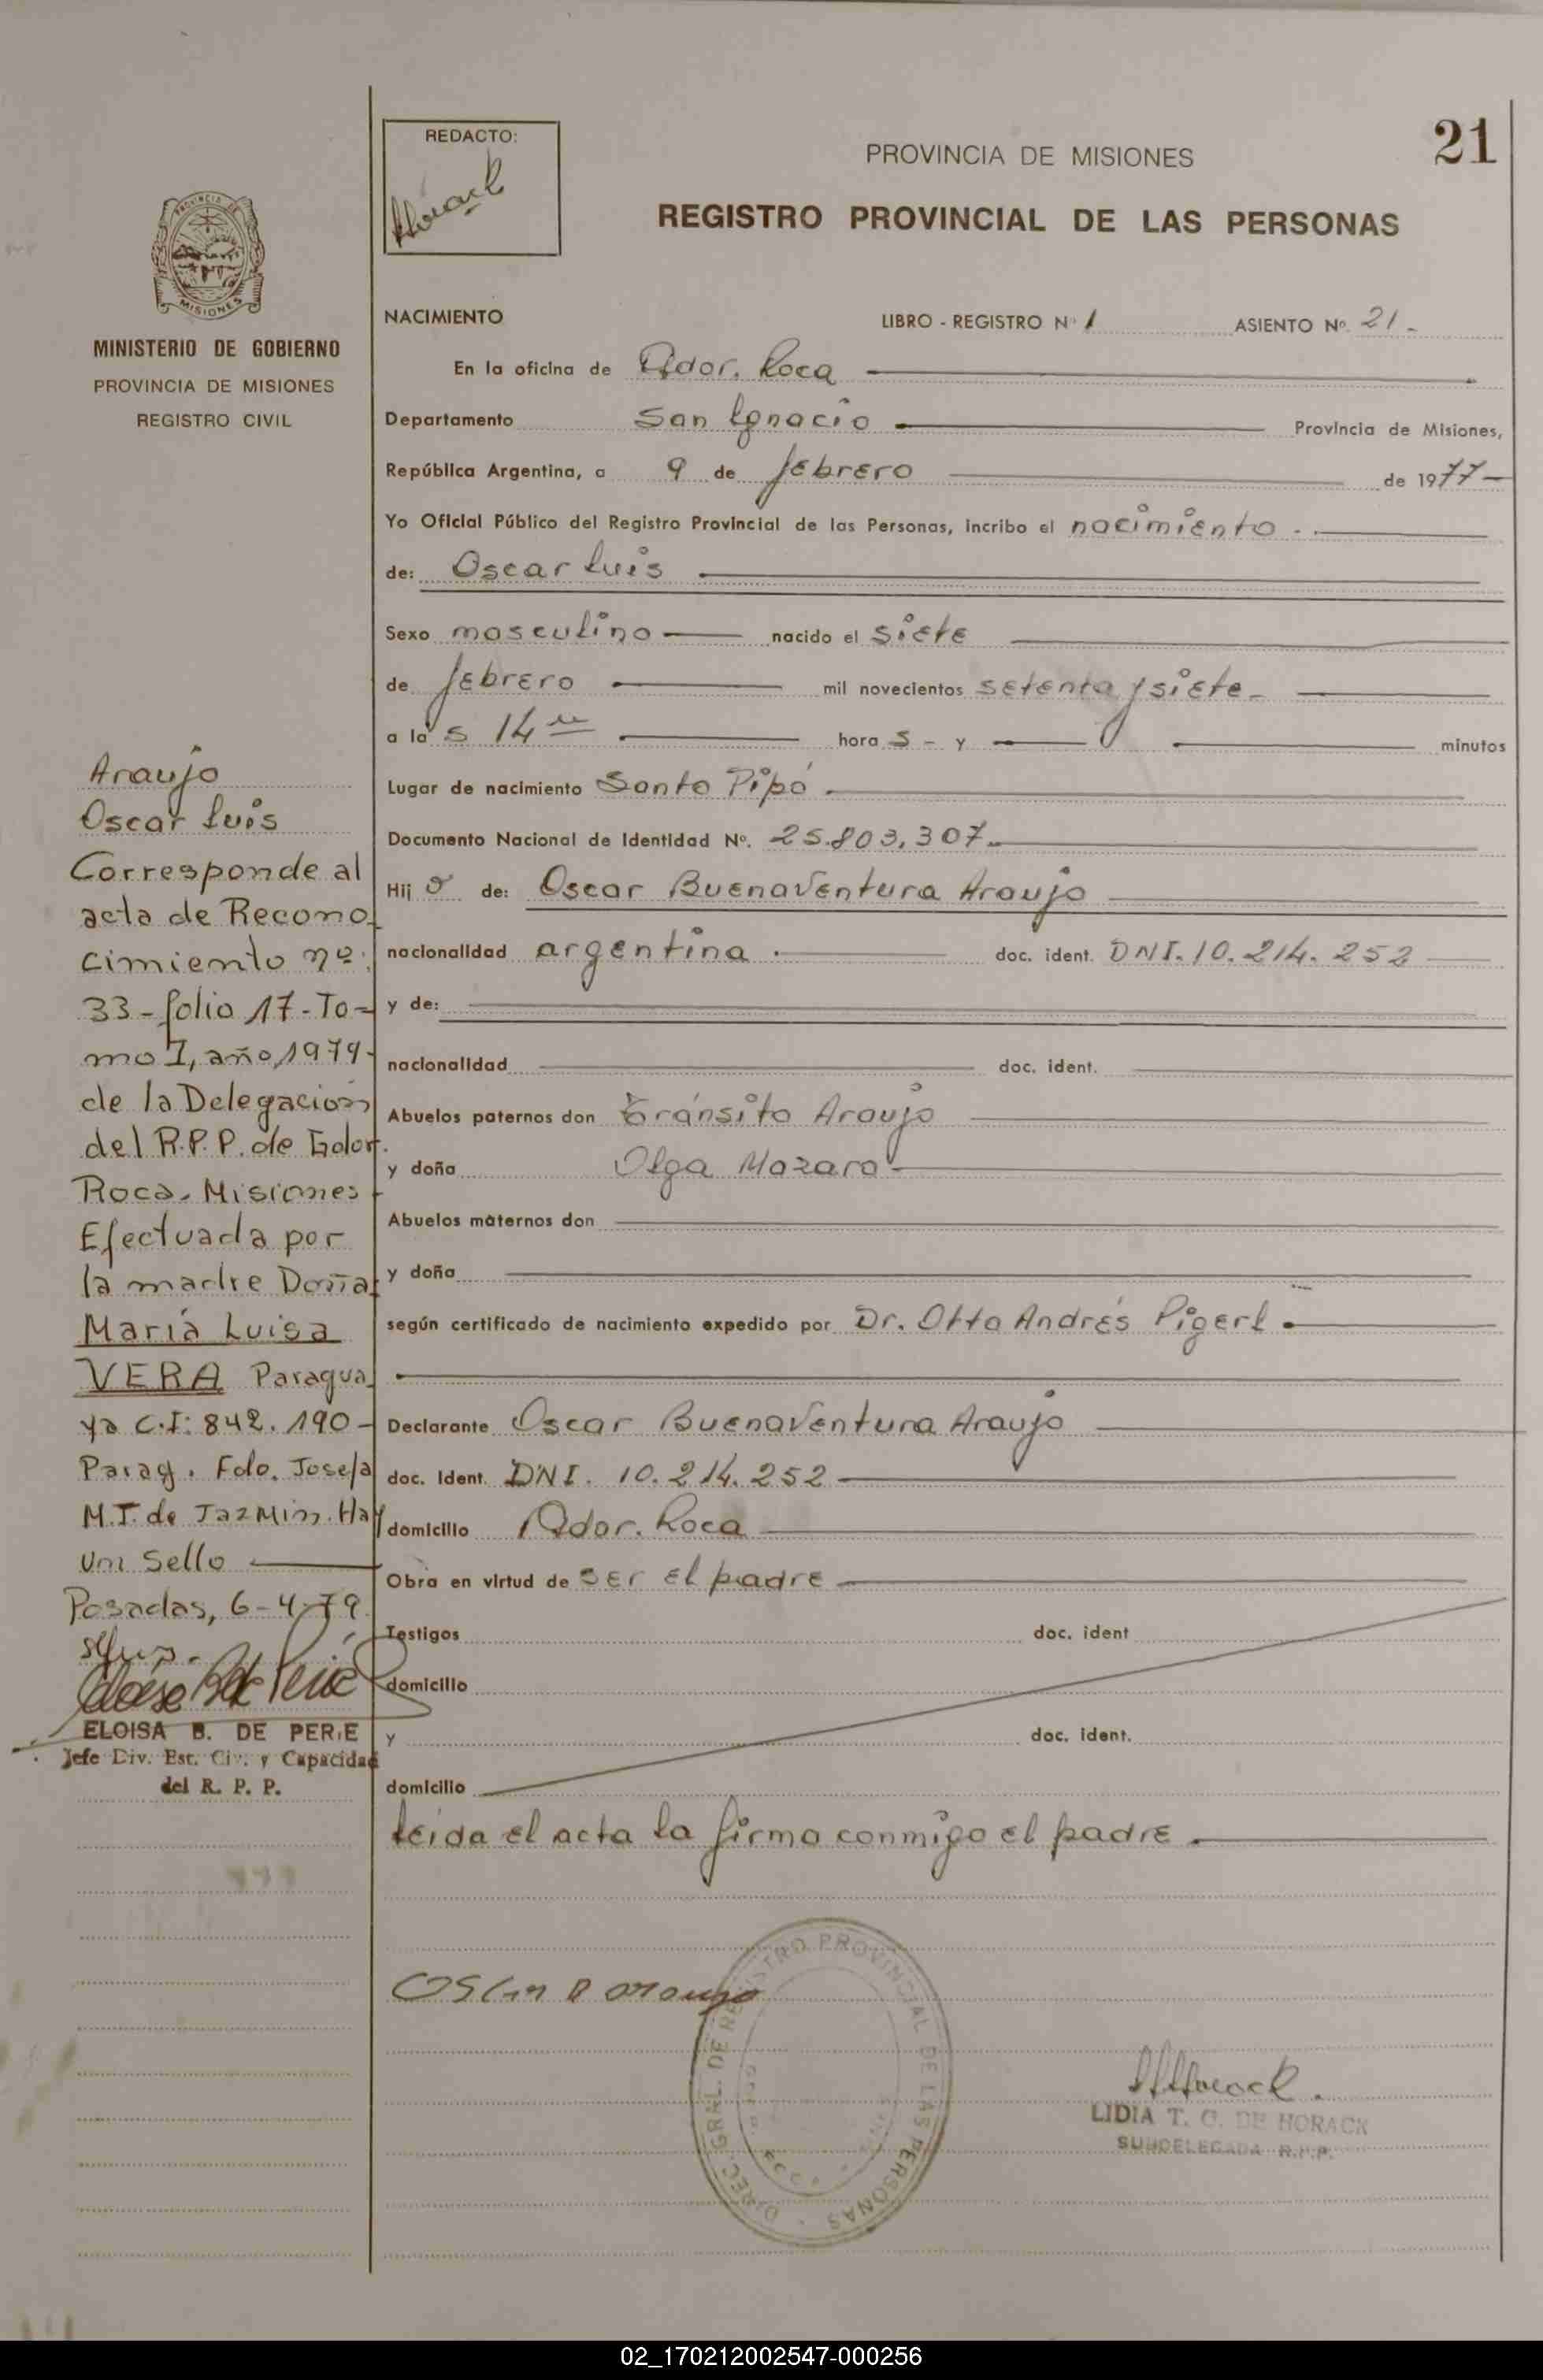 21
REDACTO:
Horack
PROVINCIA DE MISIONES
REGISTRO PROVINCIAL DE LAS PERSONAS
PROVINCIA DE
MISIONES
MINISTERIO DE GOBIERNO
PROVINCIA DE MISIONES
REGISTRO CIVIL
NACIMIENTO LIBRO - REGISTRO Nº 1 ASIENTO Nº. 21.-
En la oficina de Gdor. Roca
Departamento San Ignacio Provincia de Misiones,
República Argentina, a 9 de febrero de 1977-
Yo Oficial Público del Registro Provincial de las Personas, incribo el nacimiento.-
de: Oscar Luis
Sexo masculino nacido el siete
de febrero mil novecientos setenta y siete-
a las 14 hora s - y minutos
Lugar de nacimiento Santo Pipó.
Documento Nacional de Identidad Nº. 25.803.307.
Hij o de: Oscar Buenaventura Araujo
nacionalidad argentina. doc. ident. DNI. 10. 214. 252
y de:
nacionalidad doc. ident.
Abuelos paternos don Tránsito Araujo
y doña Olga Mazaro
Abuelos maternos don
y doña
según certificado de nacimiento expedido por Dr. Otto Andrés Pigerl.
Declarante Oscar Buenaventura Araujo
doc. Ident. DNI. 10. 214. 252
domicilio Gdor. Roca
Obra en virtud de ser el padre
Testigos doc. ident
domicilio
y doc. ident.
domicilio
leida el acta la firma conmigo el padre.
Oscar B Araujo
DIREC. GRAL. DE REGISTRO PROVINCIAL DE LAS PERSONAS
LIDIA T. G. DE HORACK
SUBDELEGADA R.P.P.
Araujo
Oscar Luis
Corresponde al
acta de Recono
cimiento nº:
33-folio 17-To-
mo I, año 1979-
de la Delegación
del R.P.P. de Gdor.
Roca. Misiones
Efectuada por
la madre Doña
María Luisa
VERA Paragua
ya C.I: 842.190-
Parag. Fdo. Josefa
M.T. de Jazmin. Hay
un sello
Posadas, 6-4-79.
ELOISA B. DE PERIE
Jefe Div. Est. Civ. y Capacidad
del R. P. P.
02_170212002547-000256